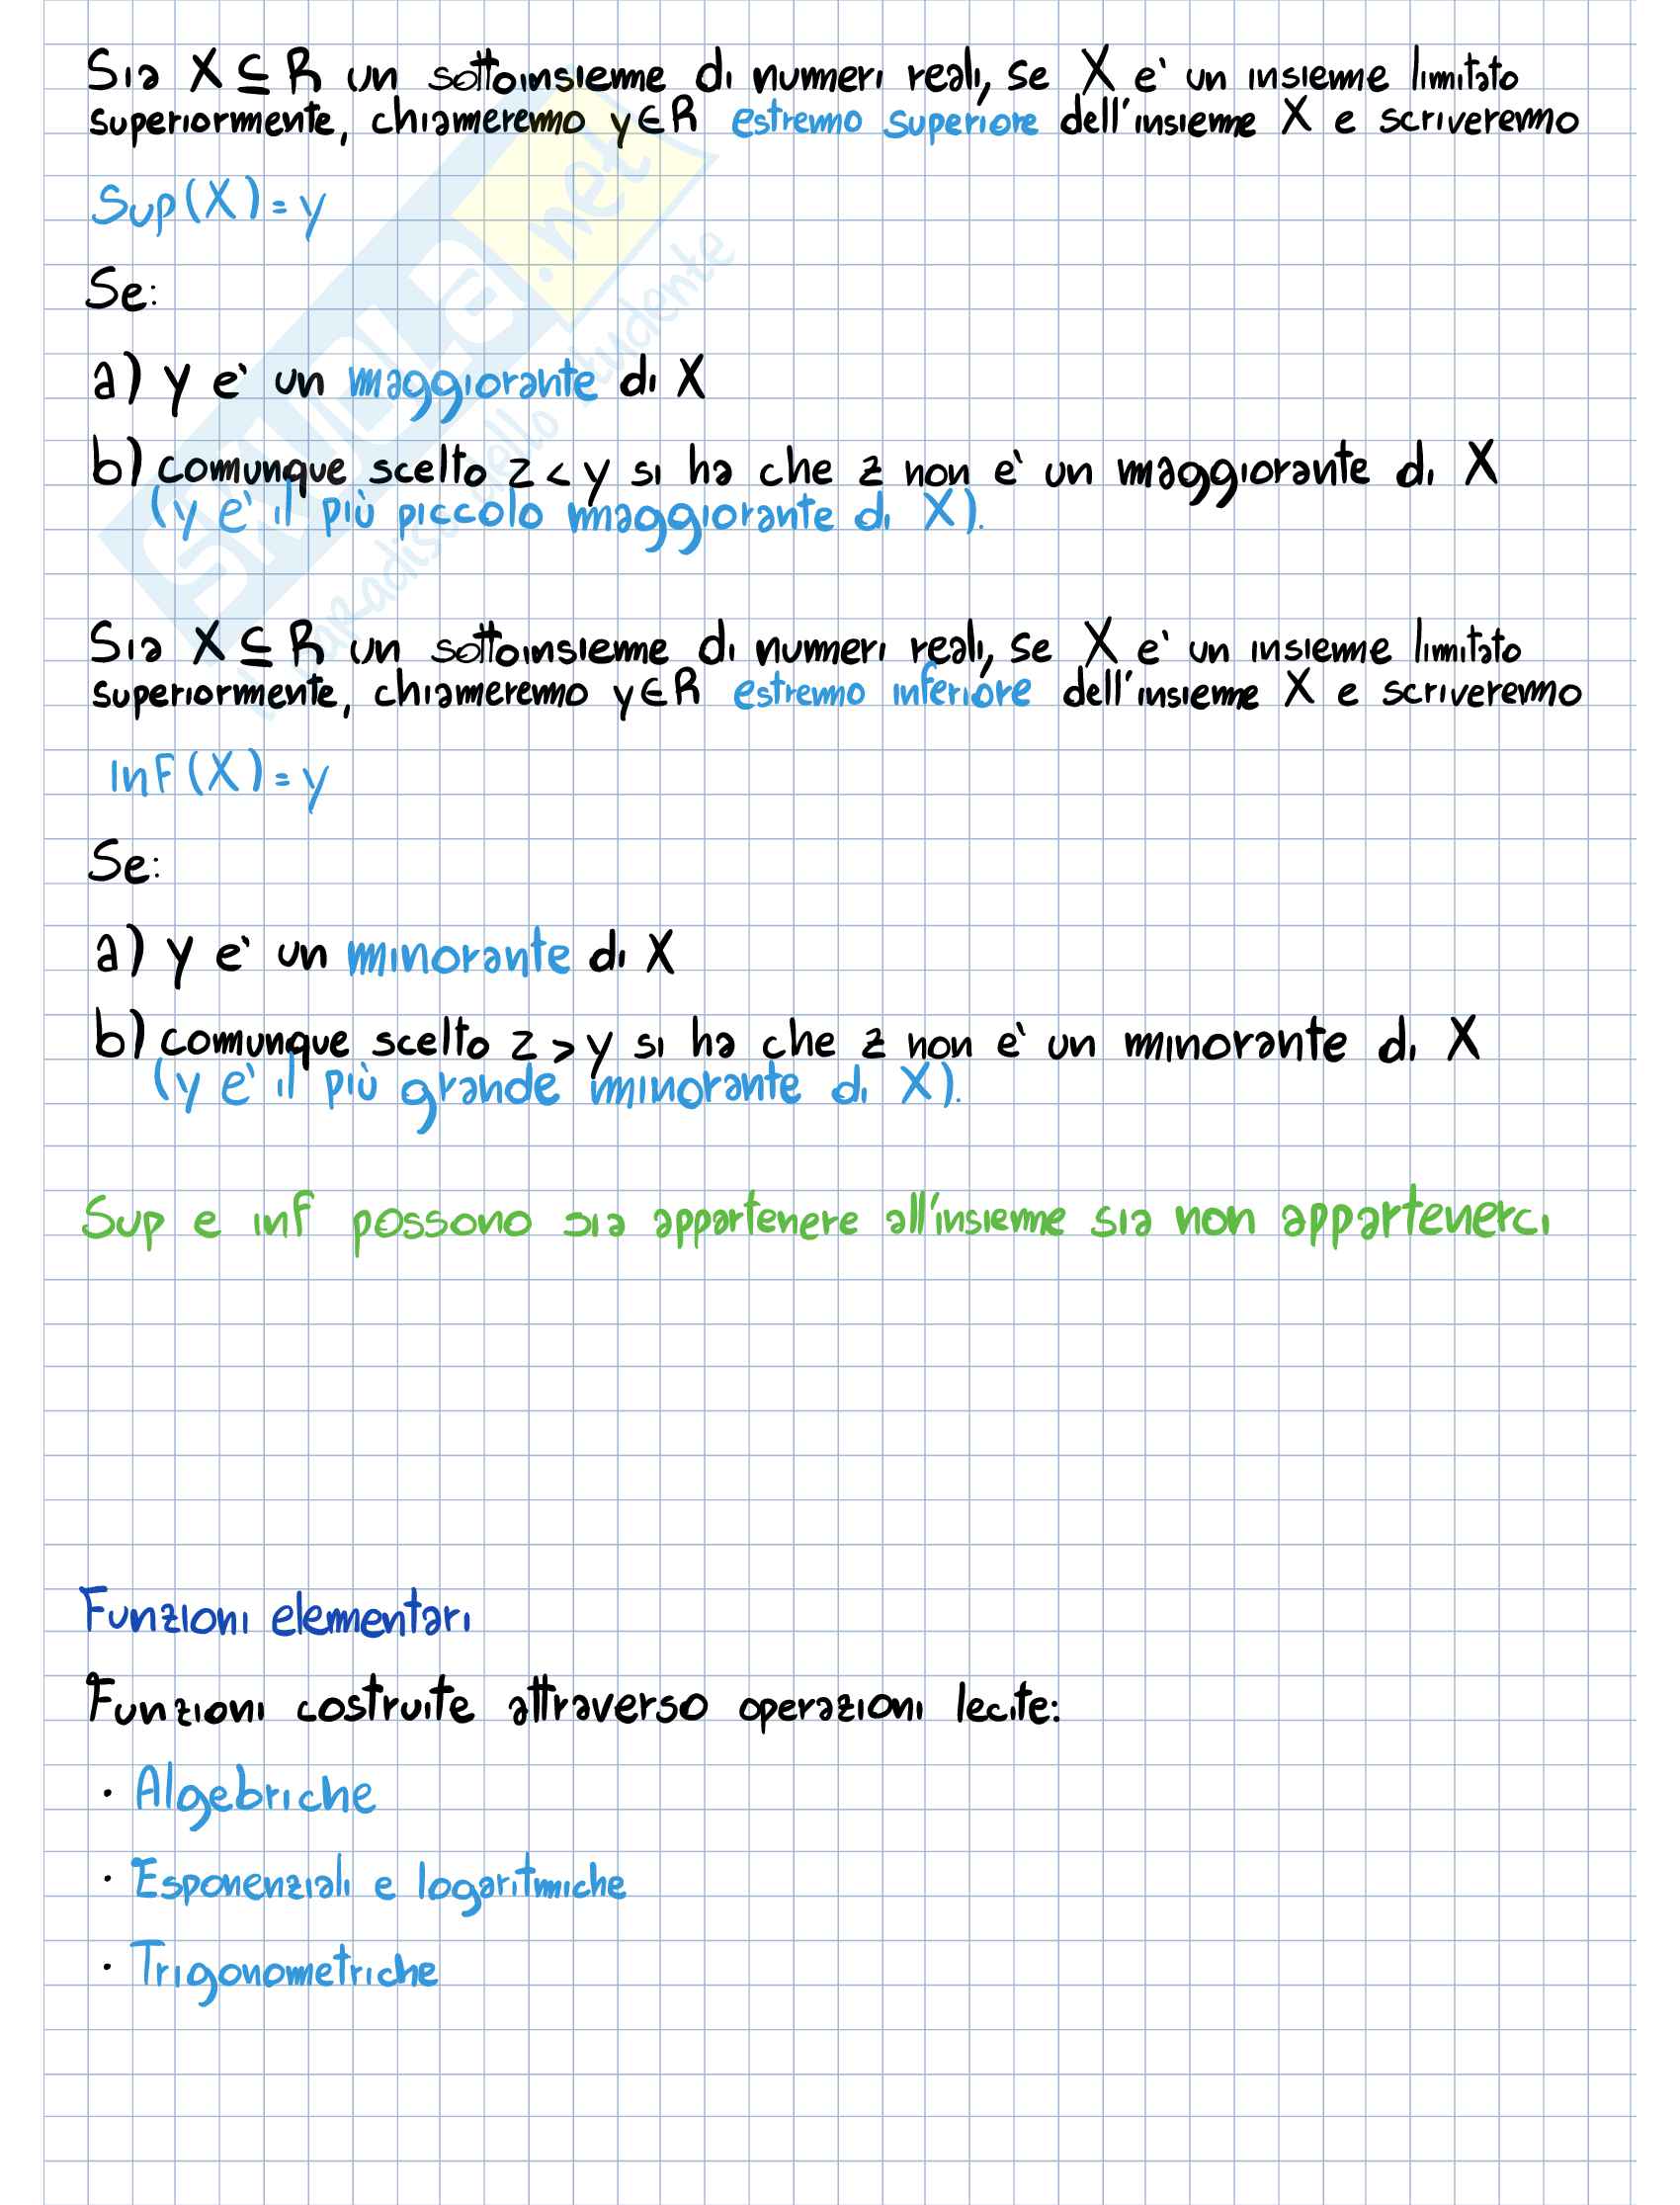 Sia X ⊆ R un sottoinsieme di numeri reali, se X e' un insieme limitato
superiormente, chiameremo y ∈ R estremo superiore dell'insieme X e scriveremo
Sup(X)=y
Se:
a) y e' un maggiorante di X
b) comunque scelto z < y si ha che z non e' un maggiorante di X
(y e' il più piccolo maggiorante di X).
Sia X ⊆ R un sottoinsieme di numeri reali, se X e' un insieme limitato
superiormente, chiameremo y ∈ R estremo inferiore dell'insieme X e scriveremo
Inf(X)=y
Se:
a) y e' un minorante di X
b) comunque scelto z > y si ha che z non e' un minorante di X
(y e' il più grande minorante di X).
Sup e inf possono sia appartenere all'insieme sia non appartenerci
Funzioni elementari
Funzioni costruite attraverso operazioni lecite:
· Algebriche
· Esponenziali e logaritmiche
· Trigonometriche
SKUOLA.net
paradiso dello studente